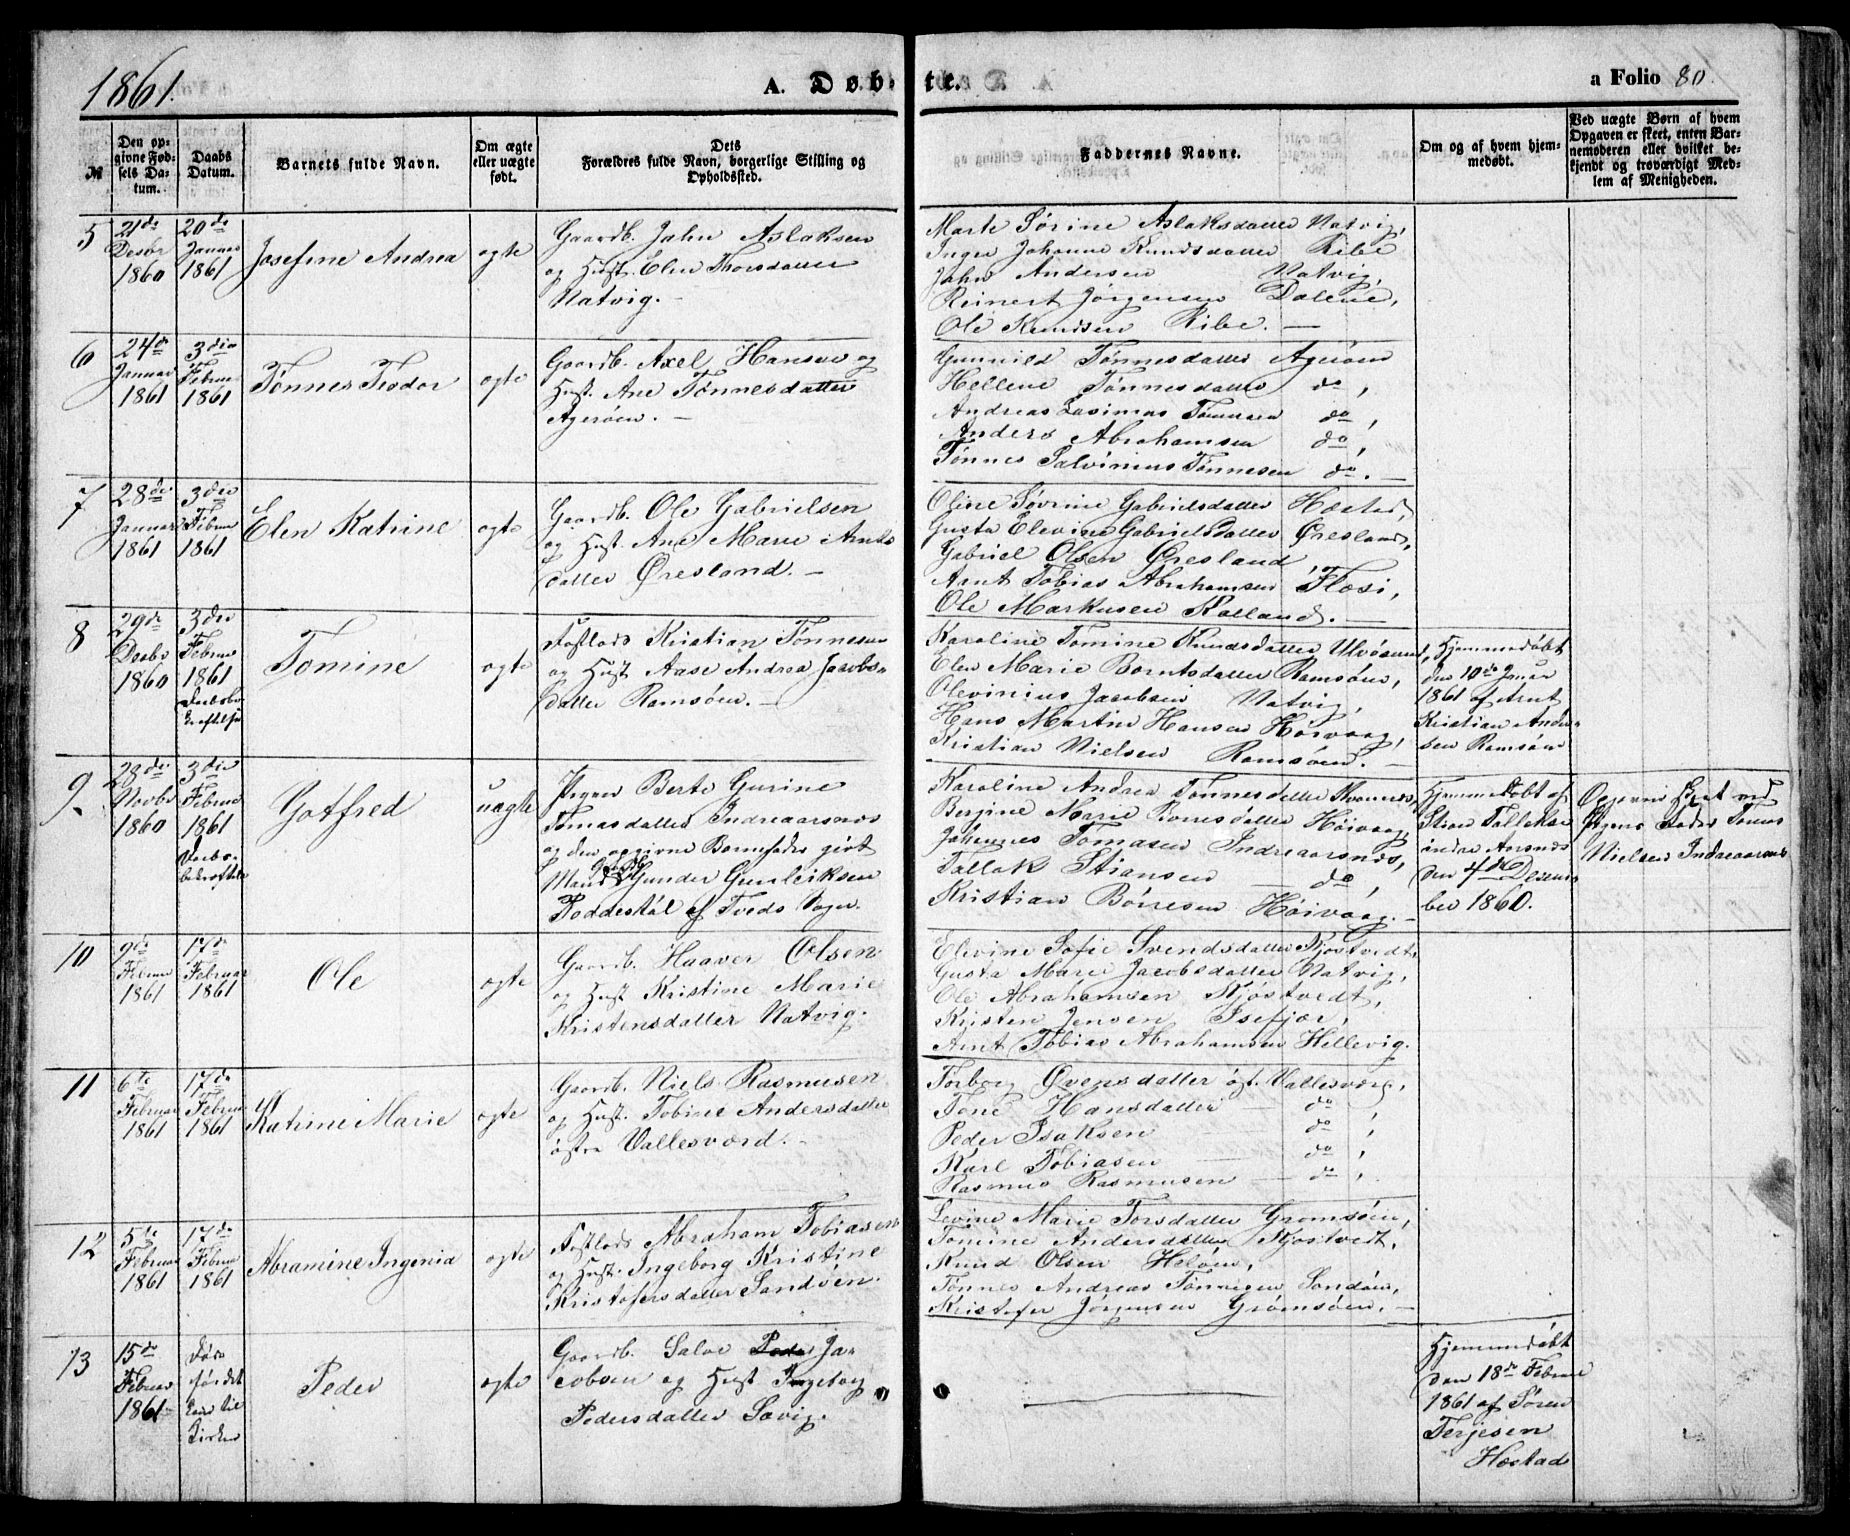 1861.
A. Døbte.
a Folio 80.
№
Den opgivne Fødsels Datum.
Daabs Datum.
Barnets fulde Navn.
Om ægte eller uægte født.
Dets Forældres fulde Navn, borgerlige Stilling og Opholdssted.
Faddernes Navne.
Om og af hvem hjemmedøbt.
Ved uægte Børn af hvem Opgaven er skeet, enten Barnemoderen eller hvilket bekjendt og troværdigt Medlem af Menigheden.
5
21de
Decbr
1860
20de
Januar
1861
Josefine Andrea
ægte
Gaardb. Jahn Aslaksen
og Hust. Elen Thorsdatter
Natvig.
Marte Sørine Aslaksdatter Natvig,
Inger Johanne Knudsdatter Ribe
Jahn Andersen Natvig,
Reinert Jørgensen Dalene,
Ole Knudsen Ribe.
6
24de
Januar
1861
3die
Februar
1861
Tønnes Teodor
ægte
Gaardb. Axel Hansen og
Hust. Ane Tønnesdatter
Agerøen.
Gunnild Tønnesdatter Agerøen
Hellene Tønnesdatter do,
Andreas Zasimas Tønnesen do,
Anders Abrahamsen do,
Tønnes Salvinius Tønnesen do.
7
28de
Januar
1861
3die
Februar
1861
Elen Katrine
ægte
Gaardb. Ole Gabrielsen
og Hust. Ane Marie Arnts
datter Øresland.
Oline Søvrine Gabrielsdatter Hæstad,
Gusta Elevine Gabrielsdatter Øresland,
Gabriel Olsen Øresland,
Arnt Tobias Abrahamsen Flæsi,
Ole Markusen Kalland.
8
29de
Decbr
1860
3die
Februar
1861
Daabsbekræftelse
Tomine
ægte
Fostlods Kristian Tønnesen
og Hust. Aase Andrea Jacobs-
datter Ramsøen.
Karoline Tomine Knudsdatter Ulvøsund,
Elen Marie Berntsdatter Ramsøen,
Olevinius Jacobsen Natvig,
Hans Martin Hansen Høivaag,
Kristian Nielsen Ramsøen.
Hjemmedøbt
den 10de Januar
1861 af Arnt
Kristian Ander-
sen Ramsøen
9
28de
Novbr
1860
3die
Februar
1861
Daabs-
bekræftelse
Gotfred
uægte
Pigen Berte Gurine
Tomasdatter Indreaarsnæs
og den opgivne Barnefader givt
Mand Gunder Gunleiksen
Toddestøl af Tveds Sogn.
Karoline Andrea Tønnesdatter Kvannes,
Bergine Marie Børresdatter Høivaag,
Johannes Tomasen Indreaarsnæs,
Tallak Stiansen do,
Kristian Børresen Høivaag.
Hjemmedøbt af
Stian Tallaksen
indre Aarsnæs
den 4de Decem-
ber 1860.
Opgaven skeet ved
Pigens Fader Tomas
Nielsen Indreaarsnæs
10
9de
Februar
1861
17de
Februar
1861
Ole
ægte
Gaardb. Haaver Olsen
og Hust Kristine Marie
Kristensdatter Natvig.
Elevine Sofie Svendsdatter Kjøstvedt,
Gusta Marie Jacobsdatter Natvig,
Ole Abrahamsen Kjøstvedt,
Kristen Jensen Isefjær,
Arnt Tobias Abrahamsen Hellevig.
11
6te
Februar
1861
17de
Februar
1861
Katrine Marie
ægte
Gaardb. Niels Rasmusen
og Hust. Tobine Andersdatter
østre Vallesværd.
Torborg Øvensdatter øst. Vallesværd,
Tone Hansdatter do,
Peder Isaksen do,
Karl Tobiasen do,
Rasmus Rasmusen do,
12
5te
Februar
1861
17de
Februar
1861
Abramine Ingenia
ægte
Fostlods Abraham Tobiasen
og Hust. Ingeborg Kristine
Kristofersdatter Sandøen.
Levine Marie Torsdatter Gromsøen,
Tomine Andersdatter Kjøstvedt,
Knud Olsen Heløen,
Tønnes Andreas Tønnesen Sandøen,
Kristofer Jørgensen Gromsøen.
13
15de
Februar
1861
Døde
før det
kom til
Kirken
Peder
ægte
Gaardb. Salve Ja-
cobsen og Hust Ingeborg
Pedersdatter Sævig.
Hjemmedøbt
den 18de Februar
1861 af Søren
Terjesen
Hæstad